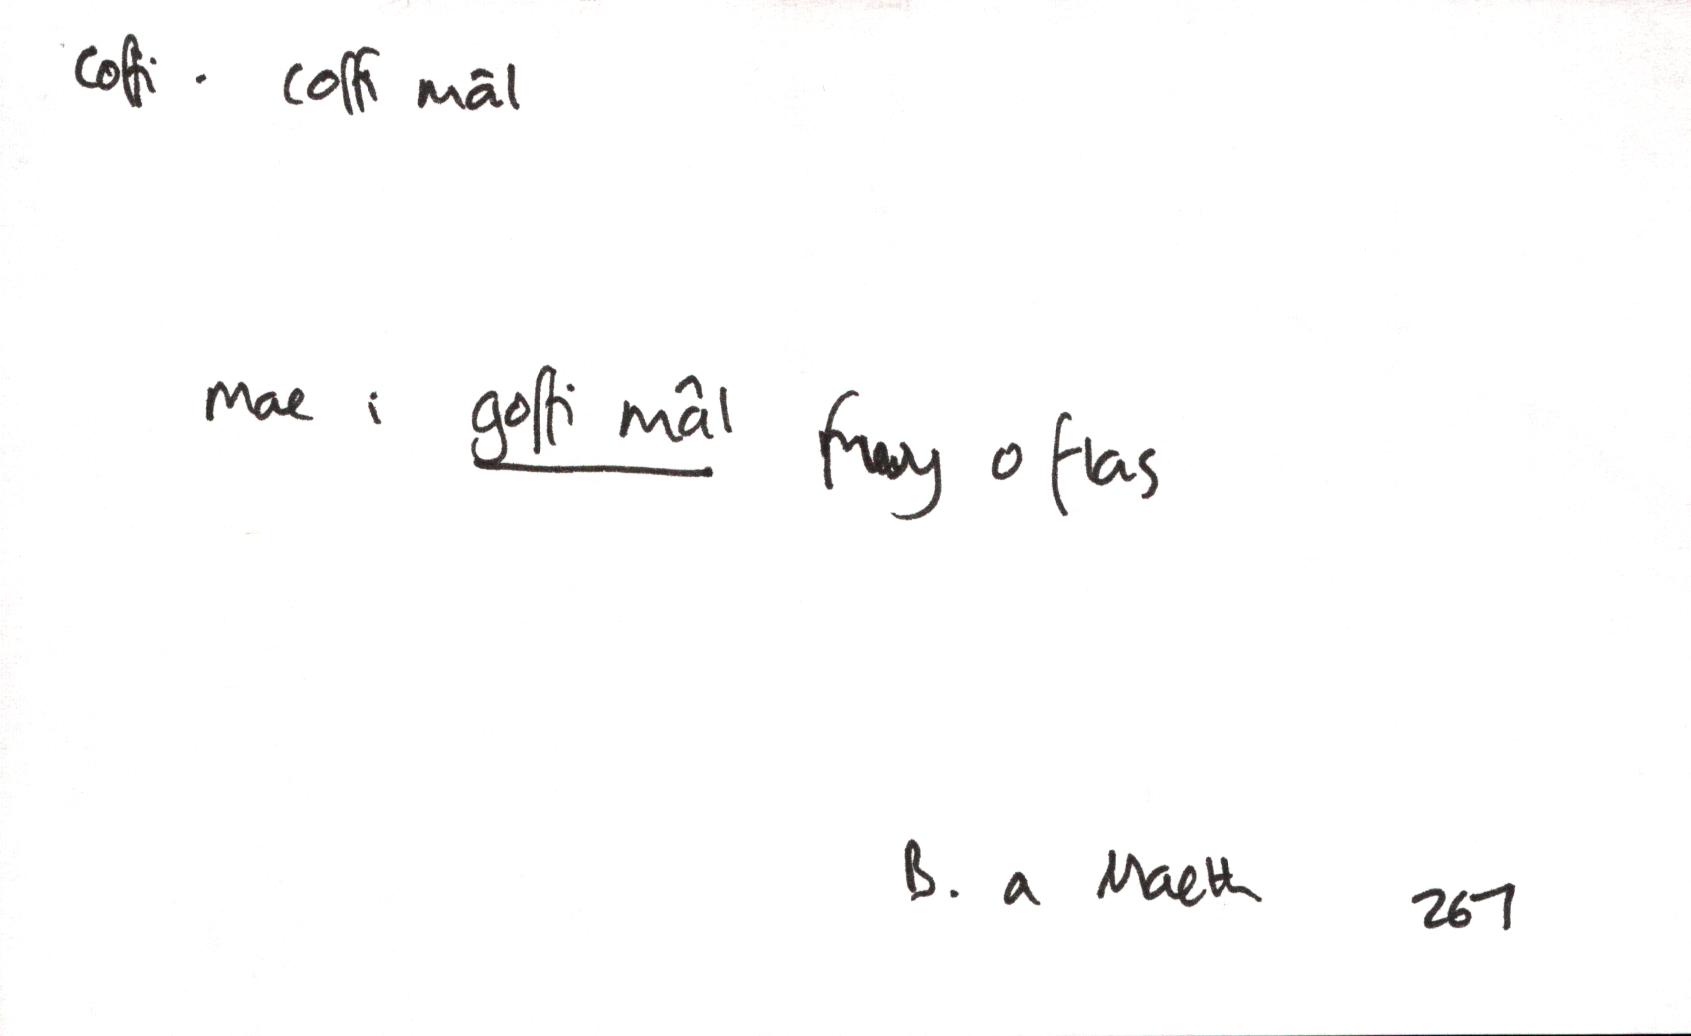 coffi . coffi mâl
mae i goffi mâl fwy o flas
B. a Maeth 267